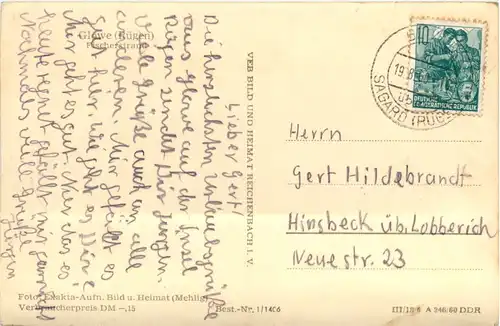 Glowe (Rügen)
Fischerstrand
Lieber Gert!
Die herzlichsten Urlaubsgrüße
aus Glowe auf der Insel
Rügen sendet Dir Jürgen.
Viele Grüße auch an alle
anderen. Mir gefällt es
gut hier. Wie geht es Dir?
Mir geht es gut. Nur das es
heute regnet gefällt mir garnicht
Nochmals viele Grüße
Jürgen
Foto: Exakta-Aufn. Bild u. Heimat (Mehlig)
Verbraucherpreis DM —,15
Best.-Nr. 1/1406
VEB BILD UND HEIMAT REICHENBACH I. V.
10
DEUTSCHE
DEMOKRATISCHE REPUBLIK
SAGARD (RÜGEN)
Herrn
Gert Hildebrandt
Hinsbeck üb. Lobberich
Neuestr. 23
A 946/60 DDR